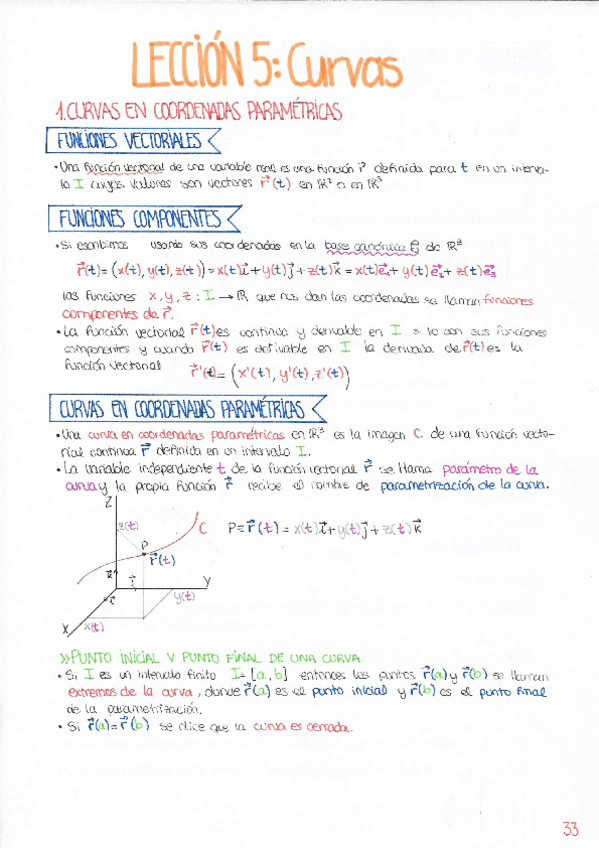 LECCIÓN 5: Curvas
1. CURVAS EN COORDENADAS PARAMÉTRICAS
FUNCIONES VECTORIALES
• Una función vectorial de una variable real es una función r⃗ definida para t en un interva-
lo I cuyos valores son vectores r⃗(t) en ℝ² o en ℝ³
FUNCIONES COMPONENTES
• Si escribimos usando sus coordenadas en la base canónica C de ℝ³
r⃗(t) = (x(t), y(t), z(t)) = x(t)i⃗ + y(t)j⃗ + z(t)k⃗ = x(t)e⃗₁ + y(t)e⃗₂ + z(t)e⃗₃
las funciones x, y, z : I → ℝ que nos dan las coordenadas se llaman funciones
componentes de r⃗.
• La función vectorial r⃗(t) es continua y derivable en I si lo son sus funciones
componentes y cuando r⃗(t) es derivable en I la derivada de r⃗(t) es la
función vectorial r⃗'(t) = (x'(t), y'(t), z'(t))
CURVAS EN COORDENADAS PARAMÉTRICAS
• Una curva en coordenadas paramétricas en ℝ³ es la imagen C de una función vecto-
rial continua r⃗ definida en un intervalo I.
• La variable independiente t de la función vectorial r⃗ se llama parámetro de la
curva y la propia función r⃗ recibe el nombre de parametrización de la curva.
Z
z(t)
C
P = r⃗(t) = x(t)i⃗ + y(t)j⃗ + z(t)k⃗
P
r⃗(t)
k⃗
j⃗
Y
i⃗
y(t)
X
x(t)
» PUNTO INICIAL Y PUNTO FINAL DE UNA CURVA
• Si I es un intervalo finito I = [a, b] entonces los puntos r⃗(a) y r⃗(b) se llaman
extremos de la curva, donde r⃗(a) es el punto inicial y r⃗(b) es el punto final
de la parametrización.
• Si r⃗(a) = r⃗(b) se dice que la curva es cerrada.
33